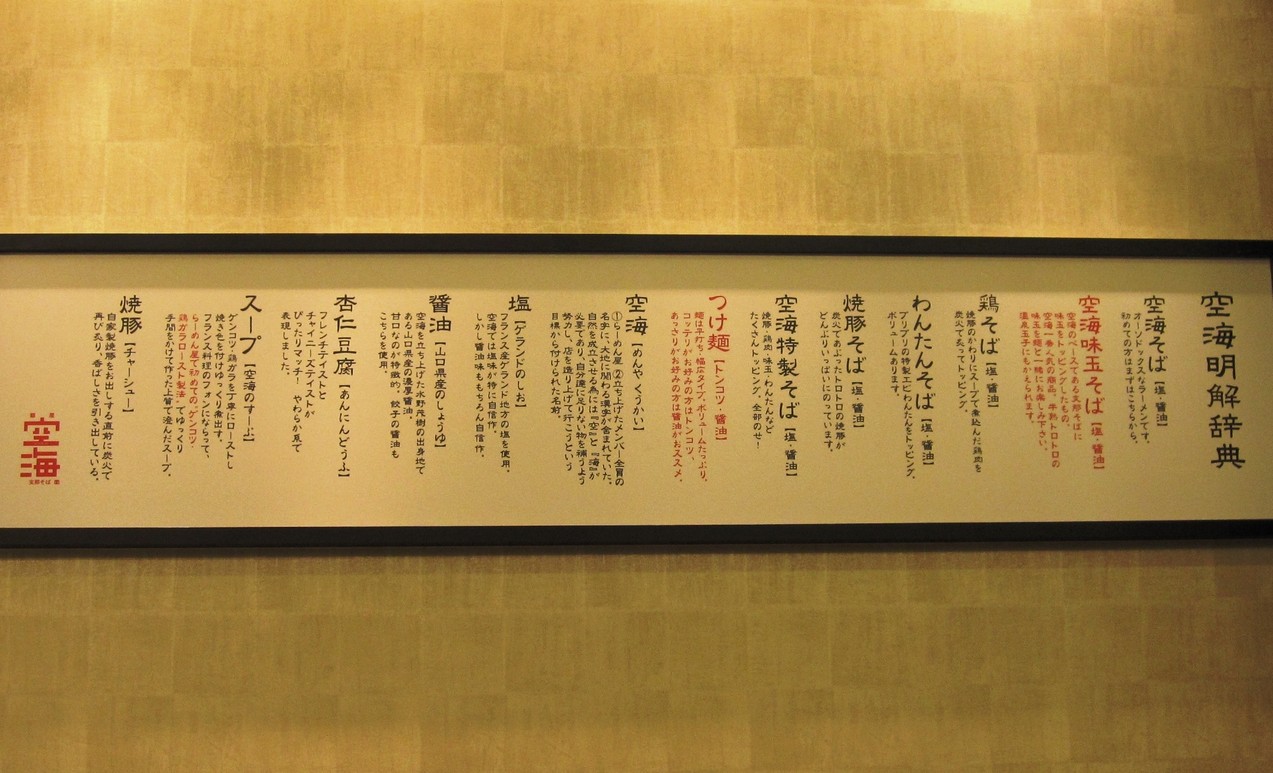 空海明解辞典
空海そば【塩・醤油】
オーソドックスなラーメンです。
初めての方はまずはこちらから。
空海味玉そば【塩・醤油】
空海のベースである支那そばに
味玉をトッピングしたもの。
空海一番人気の商品。半熟トロトロの
味玉を麺と一緒にお楽しみ下さい。
温泉玉子にもかえられます。
鶏そば【塩・醤油】
焼豚のかわりにスープで煮込んだ鶏肉を
炭火で炙ってトッピング。
わんたんそば【塩・醤油】
プリプリの特製エビわんたんをトッピング。
ボリュームあります。
焼豚そば【塩・醤油】
炭火であぶったトロトロの焼豚が
どんぶりいっぱいにのっています。
空海特製そば【塩・醤油】
焼豚・鶏肉・味玉・わんたんなど
たくさんトッピング。全部のせ!
つけ麺【トンコツ・醤油】
麺は平打ち、幅広タイプ。ボリュームたっぷり。
コッテリがお好みの方はトンコツ、
あっさりがお好みの方は醤油がおススメ。
空海【めんや くうかい】
①らーめん屋 ②立ち上げたメンバー全員の
名字に、大地に関わる漢字が含まれていた。
自然を成立させる為には『空』と『海』が
必要であり、自分達に足りない物を補うよう
努力し、店を造り上げて行こうという
目標から付けられた名前。
塩【ゲランドのしお】
フランス産ゲランド地方の塩を使用。
空海では塩味が特に自信作。
しかし醤油味ももちろん自信作。
醤油【山口県産のしょうゆ】
空海を立ち上げた水野茂樹の出身地で
ある山口県産の濃厚醤油。
甘口なのが特徴的。餃子の醤油も
こちらを使用。
杏仁豆腐【あんにんどうふ】
フレンチテイストと
チャイニーズテイストが
ぴったりマッチ! やわらか系で
表現しました。
スープ【空海のすーぷ】
ゲンコツ・鶏ガラを丁寧にローストし
焼き色を付けゆっくり煮出す。
フランス料理のフォンにならって、
らーめん屋で初めての“ゲンコツ・
鶏ガラロースト製法”でゆっくり
手間をかけて作った上質で澄んだスープ。
焼豚【チャーシュー】
自家製焼豚をお出しする直前に炭火で
再び炙り、香ばしさを引き出している。
空海